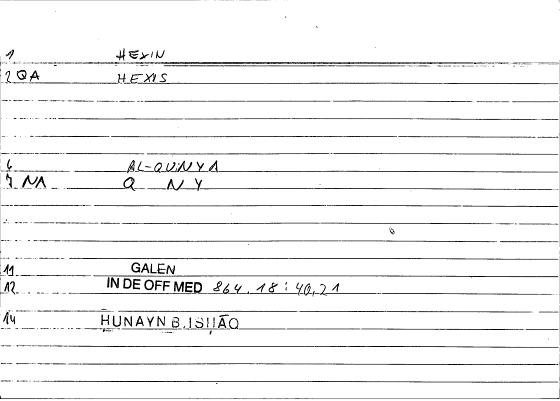 1 HEXIN
2 QA HEXIS
6 AL-QUNYA
7 NA Q NY
11 GALEN
12 IN DE OFF MED 864.18:40,21
14 HUNAYN B.ISḤĀQ